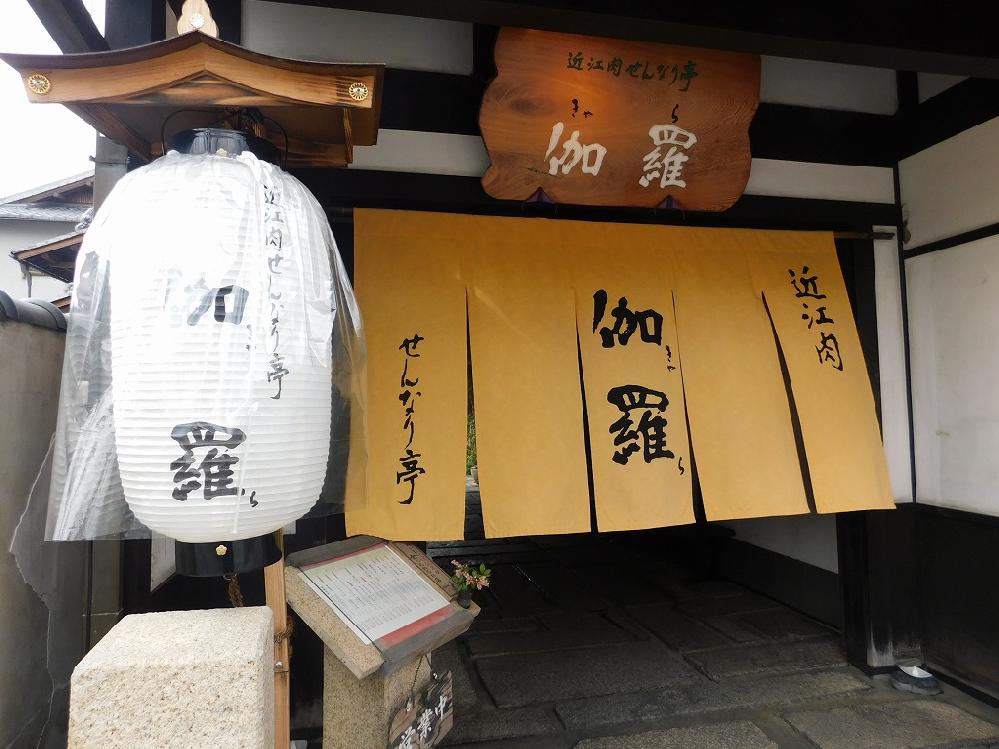 近江肉せんなり亭
きゃ ら
伽羅
近江肉せんなり亭
伽羅
ら
近江肉
伽羅
きゃ
ら
せんなり亭
営業中